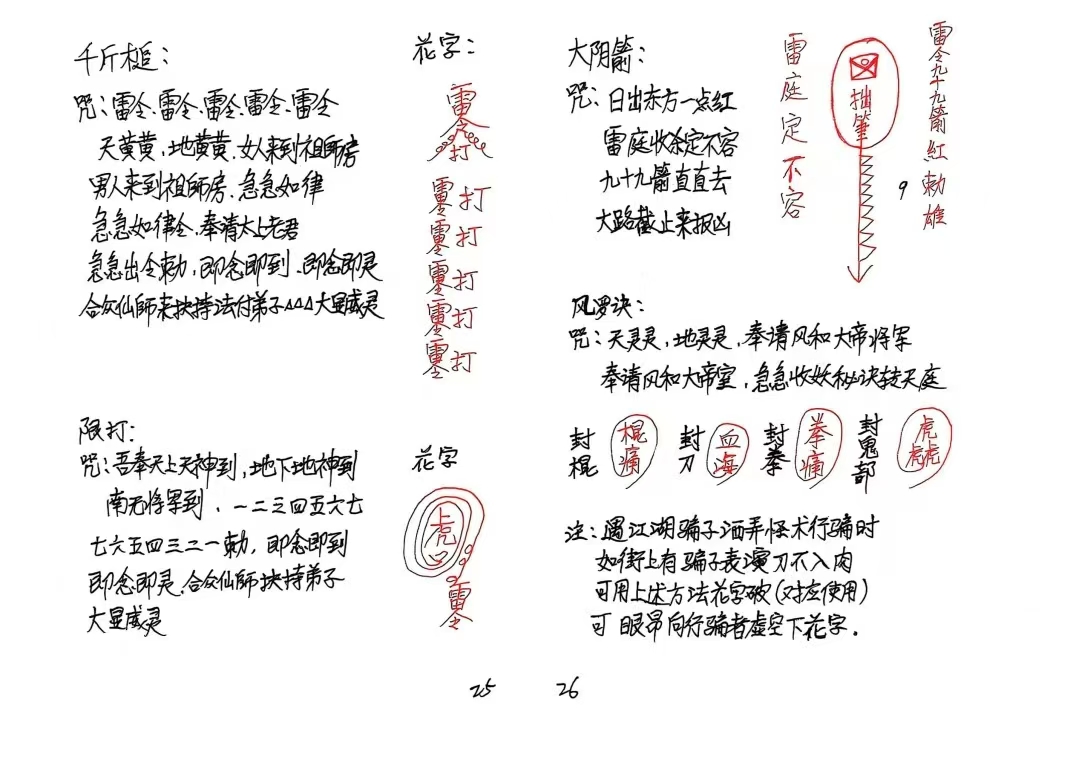 千斤槌：
花字：
咒：雷令、雷令、雷令、雷令、雷令
天黄黄，地黄黄、女人来到祖師房
男人来到祖師房、急急如律
急急如律令、奉请太上老君
急急出令勅，即念即到、即念即灵
合众仙師来扶持法付弟子△△△大显威灵
雷令
打
雷令打
雷令打
雷令打
雷令打
雷令打
限打：
咒：吾奉天上天神到，地下地神到
南无将军到．一二三四五六七
七六五四三二一勅，即念即到
即念即灵、合众仙師扶持弟子
大显威灵
花字
虎
雷令
25
大阴箭：
咒：日出东方一点红
雷庭收杀定不容
九十九箭直直去
大路截止来报凶
雷庭定不容
拙筆
9
雷令九十九箭紅勅雄
风罗决：
咒：天灵灵，地灵灵，奉请风和大帝将军
奉请风和大帝室，急急收妖秘诀转天庭
封棍
棍痛
封刀
血海
封拳
拳痛
封鬼部
虎虎虎
注：遇江湖骗子洒弄怪术行骗时
如街上有骗子表演刀不入肉
可用上述方法花字破（对应使用）
可眼昂向行骗者虚空下花字．
26